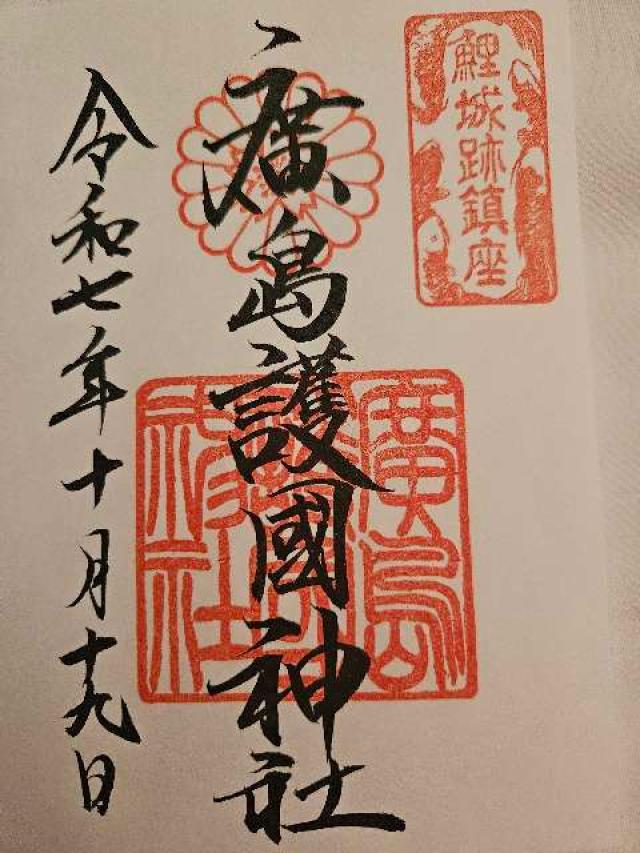 鯉城跡鎮座
廣島護國神社
廣島護國神社
令和七年十月十九日